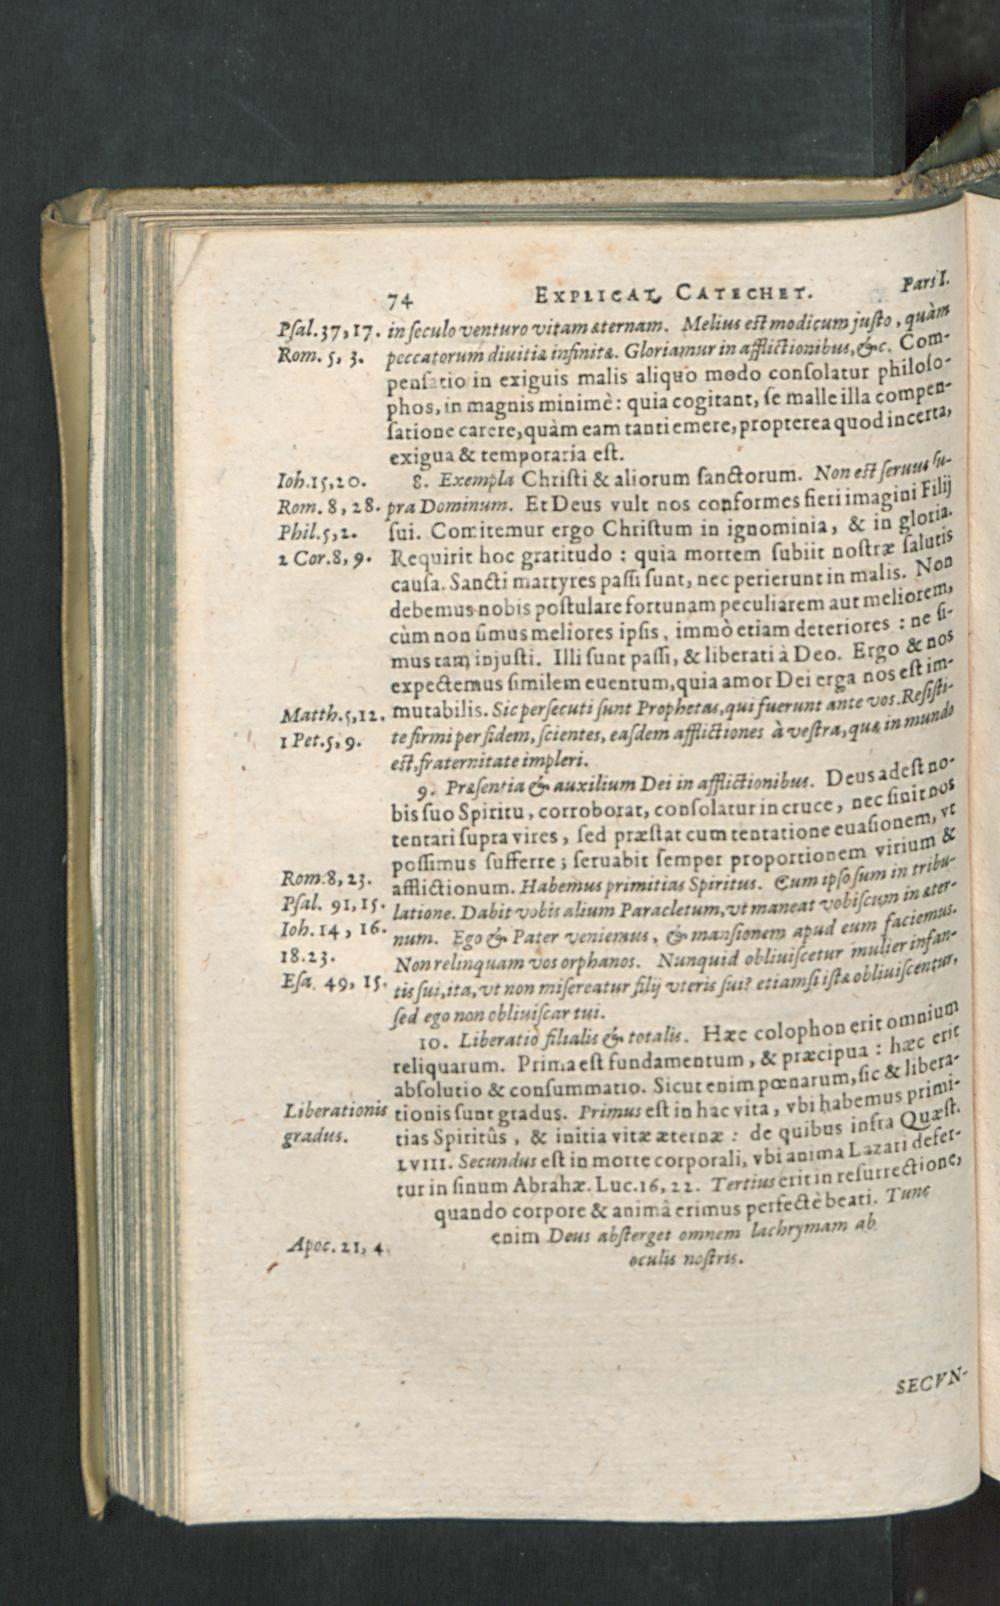 74 EXPLICAT. CATECHET. Pars I.
Psal.37,17. in seculo venturo vitam æternam. Melius est modicum justo, quàm
Rom. 5, 3. peccatorum diuitiæ infinitæ. Gloriamur in afflictionibus, &c. Com-
pensatio in exiguis malis aliquo modo consolatur philoso-
phos, in magnis minimè: quia cogitant, se malle illa compen-
satione carere, quàm eam tanti emere, propterea quod incerta,
exigua & temporaria est.
Ioh.15,20. 8. Exempla Christi & aliorum sanctorum. Non est seruus su-
Rom. 8, 28. pra Dominum. Et Deus vult nos conformes fieri imagini Filij
Phil.5,2. sui. Comitemur ergo Christum in ignominia, & in gloria.
2 Cor.8, 9. Requirit hoc gratitudo: quia mortem subiit nostræ salutis
causa. Sancti martyres passi sunt, nec perierunt in malis. Non
debemus nobis postulare fortunam peculiarem aut meliorem,
cùm non simus meliores ipsis, immò etiam deteriores: ne si-
mus tam injusti. Illi sunt passi, & liberati à Deo. Ergo & nos
expectemus similem euentum, quia amor Dei erga nos est im-
Matth.5,12. mutabilis. Sic persecuti sunt Prophetas, qui fuerunt ante vos. Resisti-
1 Pet.5, 9. te firmi per fidem, scientes, easdem afflictiones à vestra, quæ in mundo
est, fraternitate impleri.
9. Præsentia & auxilium Dei in afflictionibus. Deus adest no-
bis suo Spiritu, corroborat, consolatur in cruce, nec sinit nos
tentari supra vires, sed præstat cum tentatione euasionem, vt
possimus sufferre; seruabit semper proportionem virium &
Rom.8, 23. afflictionum. Habemus primitias Spiritus. Cum ipso sum in tribu-
Psal. 91,15. latione. Dabit vobis alium Paracletum, vt maneat vobiscum in æter-
Ioh. 14, 16. num. Ego & Pater veniemus, & mansionem apud eum faciemus.
18.23. Non relinquam vos orphanos. Nunquid obliuiscetur mulier infan-
Esa. 49, 15. tis sui, ita, vt non misereatur filij vteris sui? etiamsi istæ obliuiscentur,
sed ego non obliuiscar tui.
10. Liberatio filialis & totalis. Hæc colophon erit omnium
reliquarum. Prima est fundamentum, & præcipua: hæc erit
absolutio & consummatio. Sicut enim pœnarum, sic & libera-
Liberationis tionis sunt gradus. Primus est in hac vita, vbi habemus primi-
gradus. tias Spiritûs, & initia vitæ æternæ: de quibus infra Quæst.
LVIII. Secundus est in morte corporali, vbi anima Lazari defer-
tur in sinum Abrahæ. Luc.16, 22. Tertius erit in resurrectione,
quando corpore & animâ erimus perfectè beati. Tunc
Apoc. 21, 4. enim Deus absterget omnem lachrymam ab
oculis nostris.
SECVN-